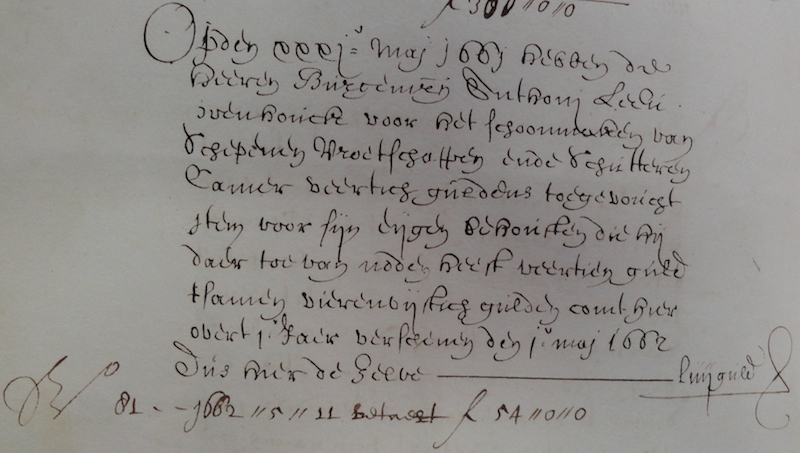 f 300 // 0 // 0
Opden xxxj.e maij 1661 hebben die
heeren Burgemrē Anthonij Leeu
wenhouck voor het schoonmaken van
Schepenen Vroetschappen ende Schutteren
Camer veertich guldens toegevoucht
Item voor sijn eijgen behouften die hij
daer toe van nooden heeft veertien guld
tsamen vierenvijftich gulden comt hier
overt j.e Jaer verschenen den j.e maij 1662
Dus hier de Selve liiij guld
81 - - 1662 // 5 // 11 betaelt f 54 // 0 // 0